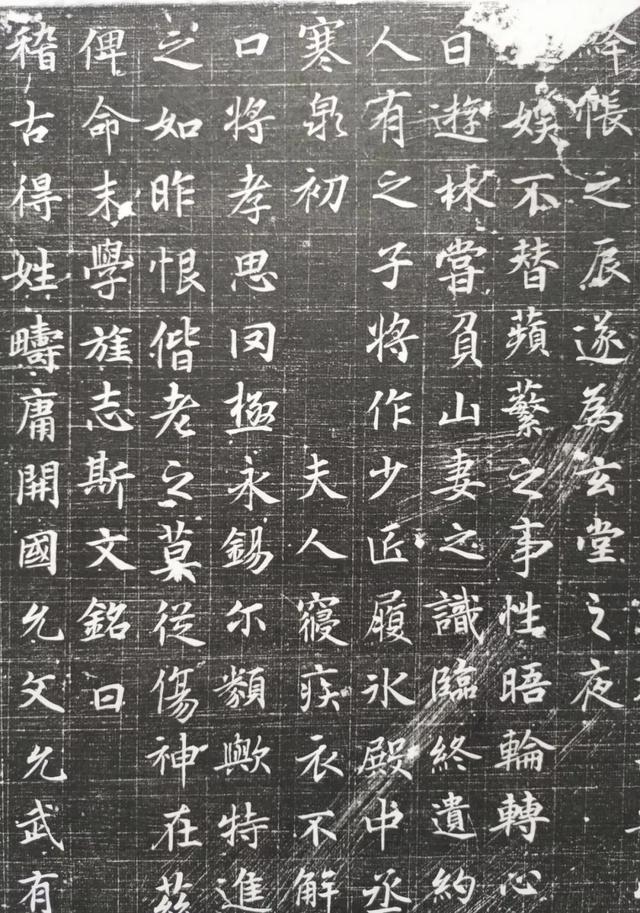 帳之辰遂為玄堂之夜
娛不替蘋蘩之事性晤輪轉心
日遊梂嘗負山妻之識臨終遺約
人有之子將作少匠履冰殿中丞
寒泉初夫人寢疾衣不解
口將孝思罔極永錫尔類歟特進
之如昨恨偕老之莫從傷神在茲
俾命末學旌志斯文銘曰
稽古得姓疇庸開國允文允武有